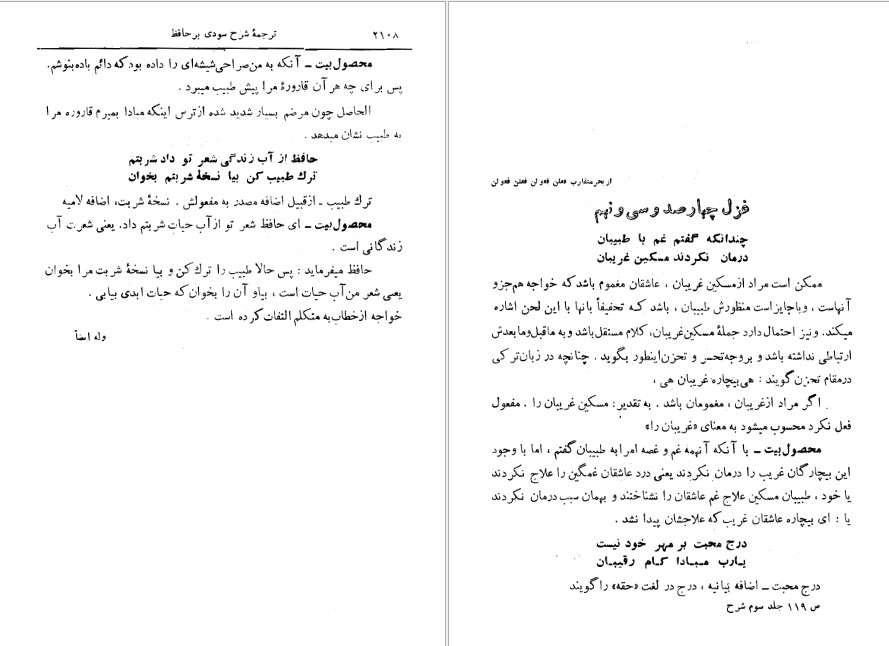 ۲۱۰۸
ترجمهٔ شرح سودی بر حافظ
محصول بیت ــ آنکه به من صراحی شیشه‌ای را داده بود که دائم باده بنوشم.
پس برای چه هر آن قارورهٔ مرا پیش طبیب میبرد .
الحاصل چون مرضم بسیار شدید شده از ترس اینکه مبادا بمیرم قاروره مرا
به طبیب نشان میدهد .
حافظ از آب زندگی شعر تو داد شربتم
ترك طبیب کن بیا نسخهٔ شربتم بخوان
ترك طبیب ـ ازقبیل اضافه مصدر به مفعولش . نسخهٔ شربت، اضافه لامیه
محصول بیت ــ ای حافظ شعر تو از آب حیات شربتم داد. یعنی شعرت آب
زندگانی است .
حافظ میفرماید : پس حالا طبیب را ترك کن و بیا نسخهٔ شربت مرا بخوان
یعنی شعر من آب حیات است ، بیاو آن را بخوان که حیات ابدی بیابی .
خواجه ازخطاب به متکلم التفات کرده است .
وله ایضاً
از بحر متقارب فعلن فعولن فعلن فعولن
غزل چهارصد و سی و نهم
چندانکه گفتم غم با طبیبان
درمان نکردند مسکین غریبان
ممکن است مراد ازمسکین غریبان ، عاشقان مغموم باشد که خواجه هم جزو
آنهاست ، و یا جایز است منظورش طبیبان ، باشد که تحفیفاً بانها با این لحن اشاره
میکند. و نیز احتمال دارد جملهٔ مسکین غریبان، کلام مستقل باشد و به ماقبل و مابعدش
ارتباطی نداشته باشد و بروجه تحسر و تحزن اینطور بگوید . چنانچه در زبان ترکی
درمقام تحزن گویند : هی بیچاره غریبان هی ،
اگر مراد ازغریبان ، مغمومان باشد . به تقدیر: مسکین غریبان را . مفعول
فعل نکرد محسوب میشود به معنای «غریبان را»
محصول بیت ــ با آنکه آنهمه غم و غصه امرا به طبیبان گفتم ، اما با وجود
این بیچارگان غریب را درمان نکردند یعنی درد عاشقان غمگین را علاج نکردند
یا خود ، طبیبان مسکین علاج غم عاشقان را نشناختند و بهمان سبب درمان نکردند
یا : ای بیچاره عاشقان غریب که علاجشان پیدا نشد .
درج محبت بر مهر خود نیست
یارب مبادا کام رقیبان
درج محبت ــ اضافه بیانیه ، درج در لغت «حقه» را گویند
ص ۱۱۹ جلد سوم شرح